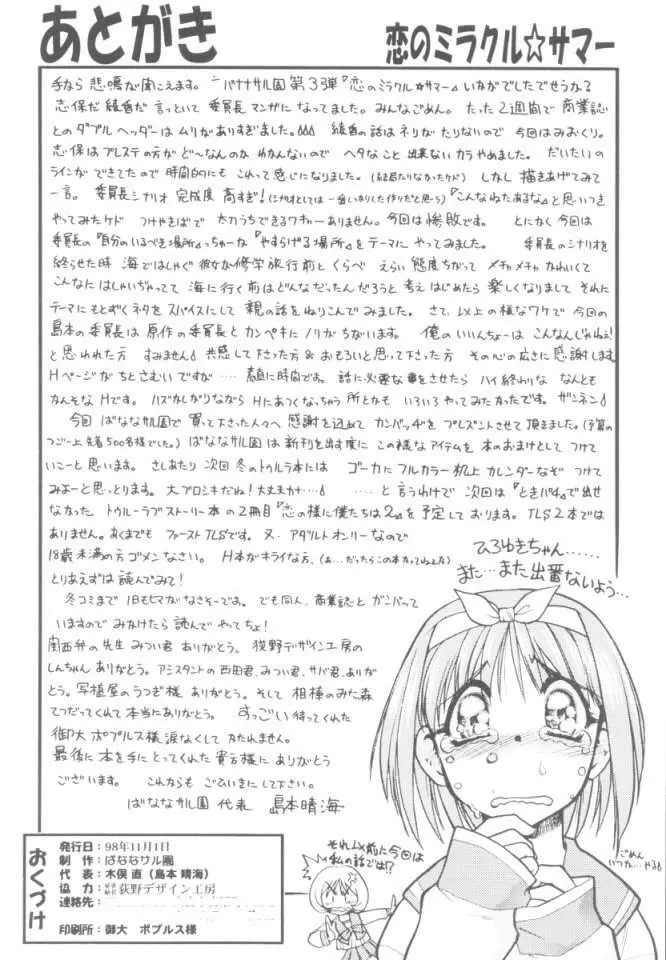 あとがき
恋のミラクル☆サマー
手なら 悲鳴が聞こえます。 バナナサル園 第33弾『恋のミラクル☆サマー』いかがでしたでせうか?
志保だ綾香だ言っといて 委員長マンガになってました。みんなごめん。たった2週間で商業誌
とのダブルヘッダーは ムリがありすぎました。 綾香の話はネリがたりないので 今回はみおくり。
志保はプレステの方が ど〜なんのか わかんないので ヘタなこと出来ないカラ やめました。だいたいの
ラインができてたので 時間的にも これって感じになりました。 しかし 描きあげてみて
一言。 委員長シナリオ 完成度 高すぎ! 『こんなねたあるな』と思いつき
やってみたケド つけやきばで 太刀うちできるワキャーありません。今回は惨敗です。 とにかく今回は
委員長の『自分のいるべき場所』っちゅーか『やすらげる場所』をテーマに やってみました。 委員長のシナリオを
終らせた時 海ではしゃぐ彼女が修学旅行前と くらべ えらい 態度ちがって メチャメチャ かわいくて
こんなに はしゃいぢゃってて 海に行く前はどんなだったんだろうと 考えはじめたら 楽しくなりまして それに
テーマにもとずくネタを スパイスにして 親の話をねりこんでみました。 さて、以上の様なワケで 今回の
島本の委員長は 原作の委員長と カンペキに ノリがちがいます。 俺のいいんちょーは こんなんじゃねぇ!
と思われた方 すみません 共感して下さった方& おもろいと思って下さった方 その心の広さに感謝します。
Hページが ちとさむいですが…… 素直に時間です。話に必要な事をさせたら ハイ終わりな なんとも
かんそなHです。 ハズかしがりながら Hにあつくなっちゃう 所とかも いろいろ やってみたかったです。 ザンネン
今回 ばななサル園で 買って下さった人々へ 感謝を込めて カンバッヂを プレゼントさせて頂きました。(予算の
つごー上先着500名様でした。) ばななサル園は 新刊を出す度に この様なアイテムを 本のおまけとして つけて
いこーと思います。 さしあたり 次回冬のトゥルラブ本には ゴーカに フルカラー机上カレンダーなぞ つけて
みよーと思っとります。大ブロシキだね! 大丈夫カナ…… ……と言うわけで 次回は『ときパチ』で出せ
なかった トゥルーラブストーリー本の2冊目『恋の様に僕たちは2』を予定しております。TLS2本では
ありません。あくまでも ファーストTLSです。又、アダルトオンリーなので
18歳未満の方 ゴメンなさい。 H本がキライな方、
とりあえずは 読んでみて!
冬コミまで 1日もヒマがなさそーです。でも同人、商業誌と ガンバって
いますので みかけたら 読んで やってちょ!
関西弁の先生 みつい君 ありがとう。 荻野デザイン工房の
しんちゃん ありがとう。アシスタントの西田君、みつい君、サバ君、ありが
とう。写植屋のうつぎ様 ありがとう。そして 相棒のみた森
てつだってくれて 本当にありがとう。 すっごい待ってくれた
御大 ポプルス様 涙なくして かたれません。
最後に 本を手にとってくれた 貴方様に ありがとう
ございます。 これからも ごひいきにして下さい。
ばななサル園 代表 島本晴海
ひろゆきちゃん……
また…また出番ないよう…
ごめん
いつか…やる
それ以前に今回は
私の話では!?
おくづけ
発行日：98年11月1日
制 作：ばななサル園
代 表：木俣 直（島本 晴海）
協 力：荻野デザイン工房
連絡先：
印刷所：御大 ポプルス様